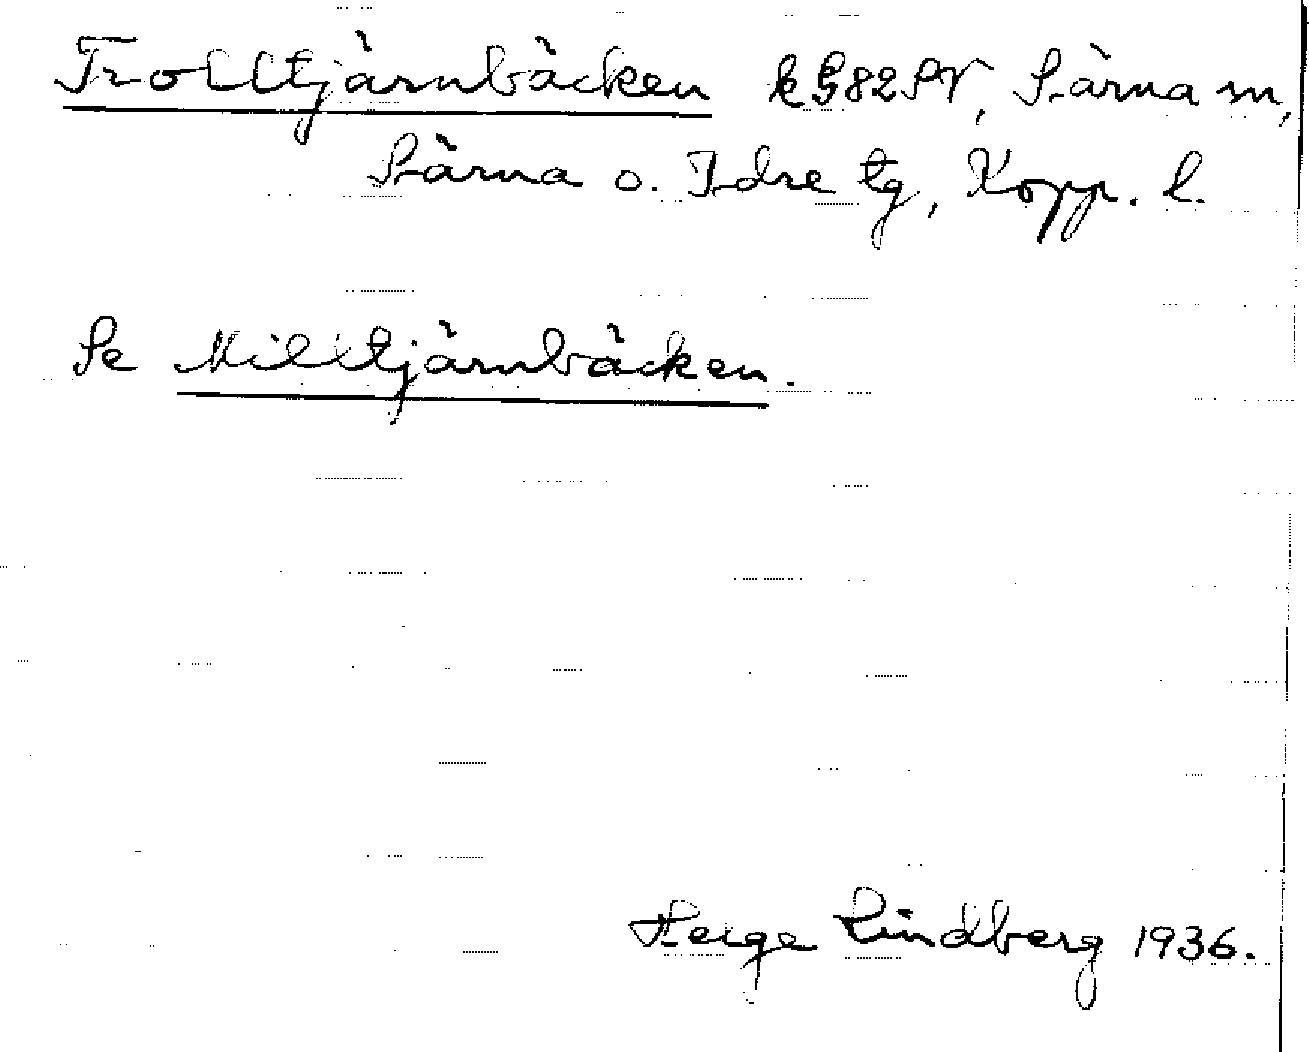 Trolltjärnbäcken k G82SV, Särna sn,
Särna o. Idre tg, Kopp. l.
Se Milltjärnbäcken.
Helge Lindberg 1936.